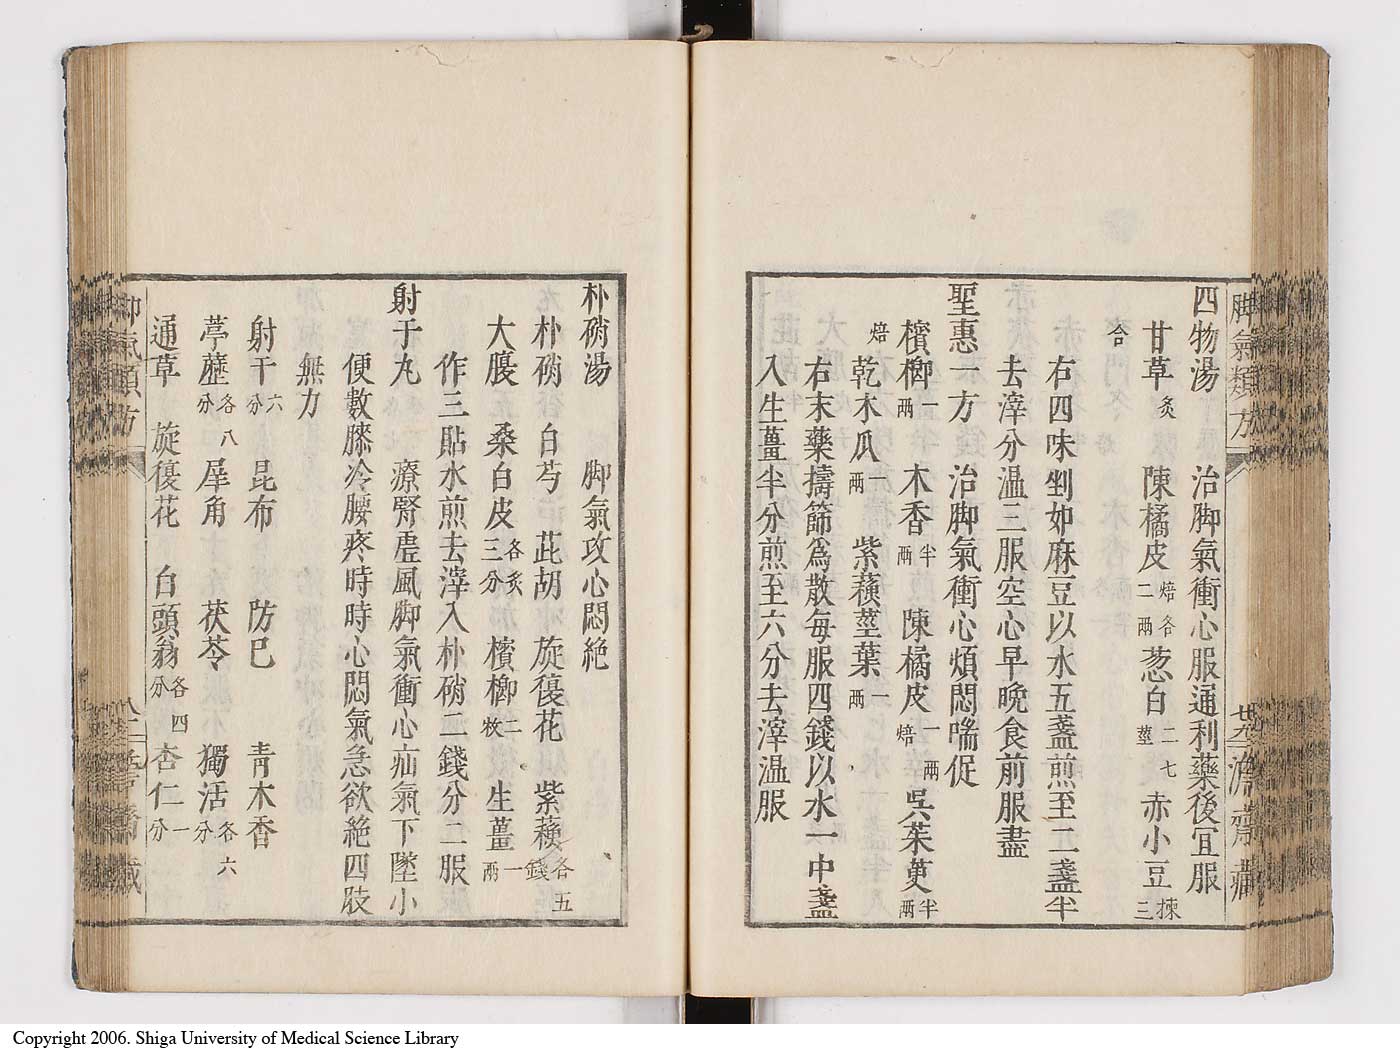 四物湯　治脚氣衝心服通利藥後宜服
甘草炙　陳橘皮焙各二兩　葱白二七莖　赤小豆揀三
合
右四味剉如麻豆以水五盞煎至二盞半
去滓分温三服空心早晩食前服盡
聖惠一方　治脚氣衝心煩悶喘促
檳榔一兩　木香半兩　陳橘皮一兩焙　呉茱萸半兩
焙　乾木瓜一兩　紫蘓莖葉一兩
右末藥擣篩爲散毎服四錢以水一中盞
入生薑半分煎至六分去滓温服
脚氣類方
濟齋藏
朴硝湯　脚氣攻心悶絶
朴硝　白芍　茈胡　旋復花　紫蘓各五錢
大腹　桑白皮各炙三分　檳榔二枚　生薑一兩
作三貼水煎去滓入朴硝二錢分二服
射于丸　療腎虚風脚氣衝心疝氣下墜小
便數膝冷腰疼時時心悶氣急欲絶四肢
無力
射干六分　昆布　防巳　青木香
葶藶各八分　犀角　茯苓　獨活各六分
通草　旋復花　白頭翁各四分　杏仁一分
脚氣類方